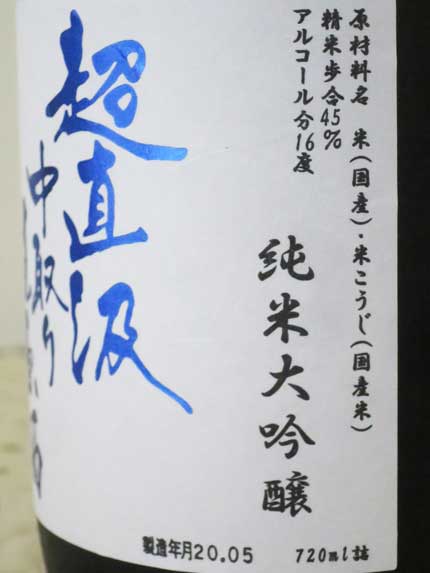 原材料名 米(国産)・米こうじ(国産米)
精米歩合45%
アルコール分16度
純米大吟醸
超直汲
中取り
製造年月20.05
720ml詰